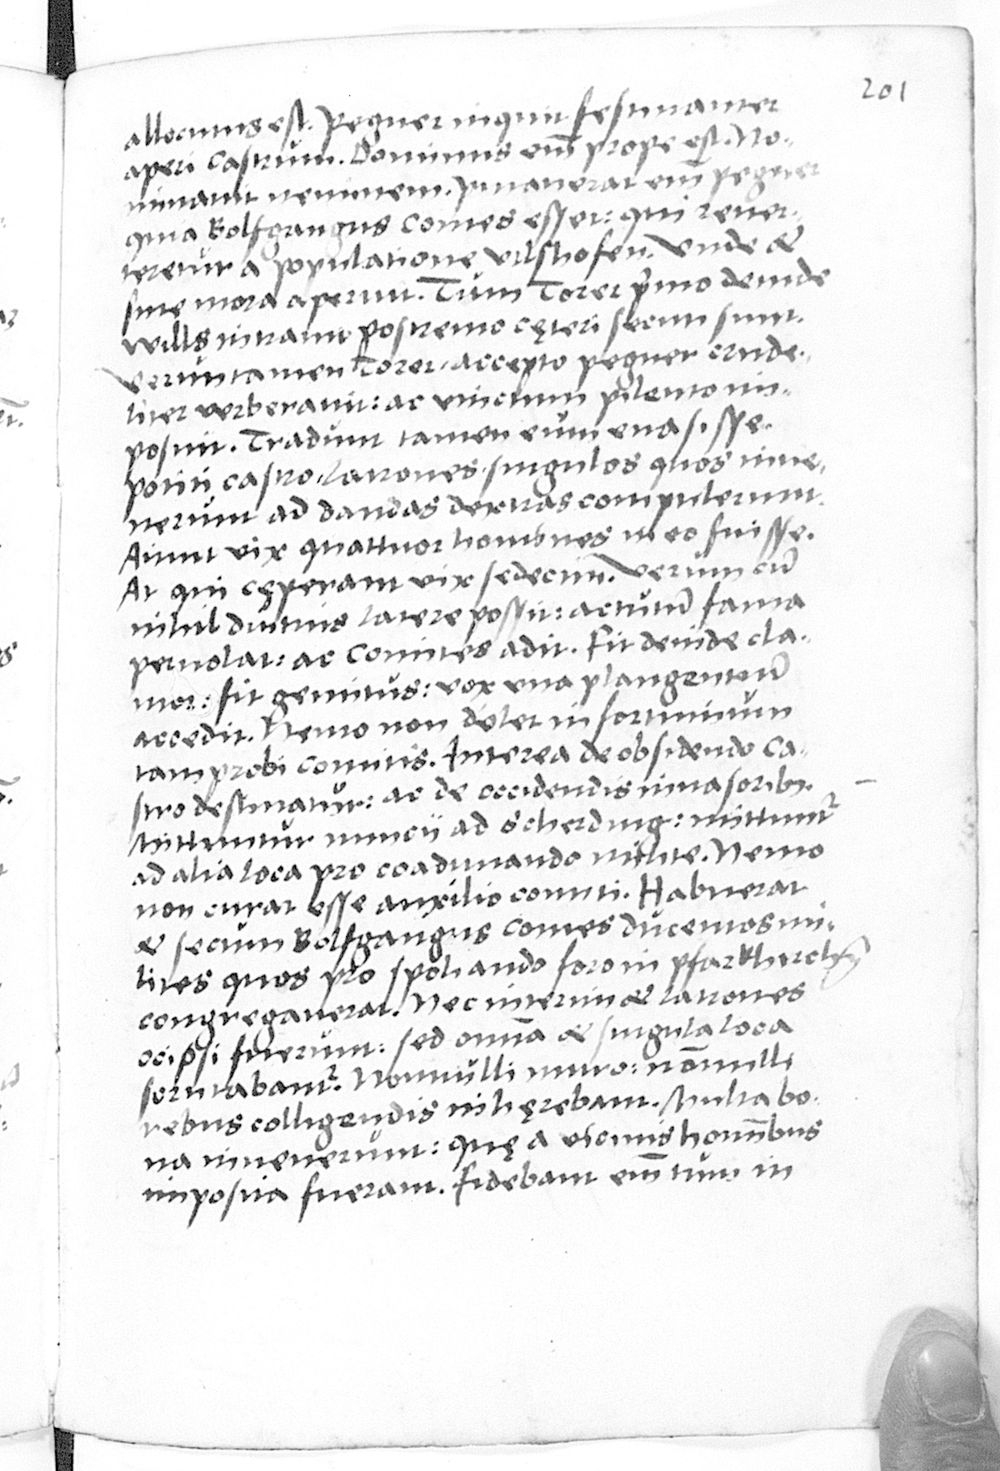 201
allocutus est. Pegner inquit festinanter
aperi castrum. Dominus em̄ prope est. No-
minauit neminem. Putauerat em̄ pegner
quia Bolfgangus Comes esset: qui reuer-
teretur a populatione vilshofen. Vnde &
sine mora aperuit. Tum Torer p̄mo deinde
Wills intrauit postremo cęteri secuti sunt.
Veruntamen Torer accepto pegner crude-
liter verberauit: ac vinctum pilento im-
posuit. Tradunt tamen eum euasisse.
potiti castro latrones singulos quos inue-
nerunt ad dandas dextras compulerunt.
Aiunt vix quattuor homines in eo fuisse.
At qui cęperant vix sedecim. Verum cū
nihil diutius latere possit: actutū fama
peruolat: ac Comites adit. Fit deinde cla-
mor: fit gemitus: vox vna plangentiū
accedit. Nemo non dolet infortunium
tam probi comitis. Interea de obsidendo ca-
stro destinatur: ac de occidendis inuasoribꝫ.
Mittuntur nuncij ad scherding: mittunt᷑
ad alia loca pro coadunando milite. Nemo
non curat esse auxilio comiti. Habuerat
& secum Bolfgangus Comes ducentos mi-
lites quos pro spoliando foro in pfarkhirchn̄
congregauerat. Nec interim & latrones
ociosi fuerunt: sed omīa & singula loca
scrutabant᷑. Nonnulli muro: nōnulli
rebus colligendis inhęrebant. Multa bo-
na inuenerunt: quę a vicinis homībus
imposita fuerant. Fidebant em̄ tum in